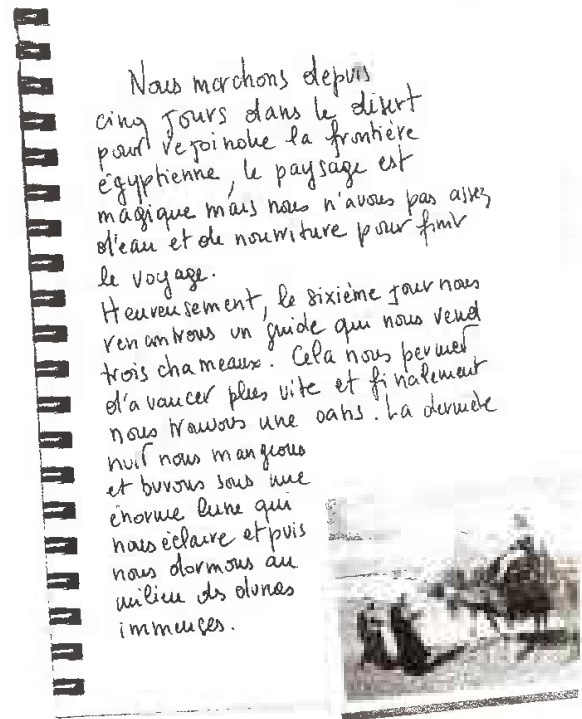 Nous marchons depuis
cinq jours dans le désert
pour rejoindre la frontière
égyptienne, le paysage est
magique mais nous n'avons pas assez
d'eau et de nourriture pour finir
le voyage.
Heureusement, le sixième jour nous
rencontrons un guide qui nous vend
trois chameaux. Cela nous permet
d'avancer plus vite et finalement
nous trouvons une oasis. La dernière
nuit nous mangeons
et buvons sous une
énorme lune qui
nous éclaire et puis
nous dormons au
milieu des dunes
immenses.